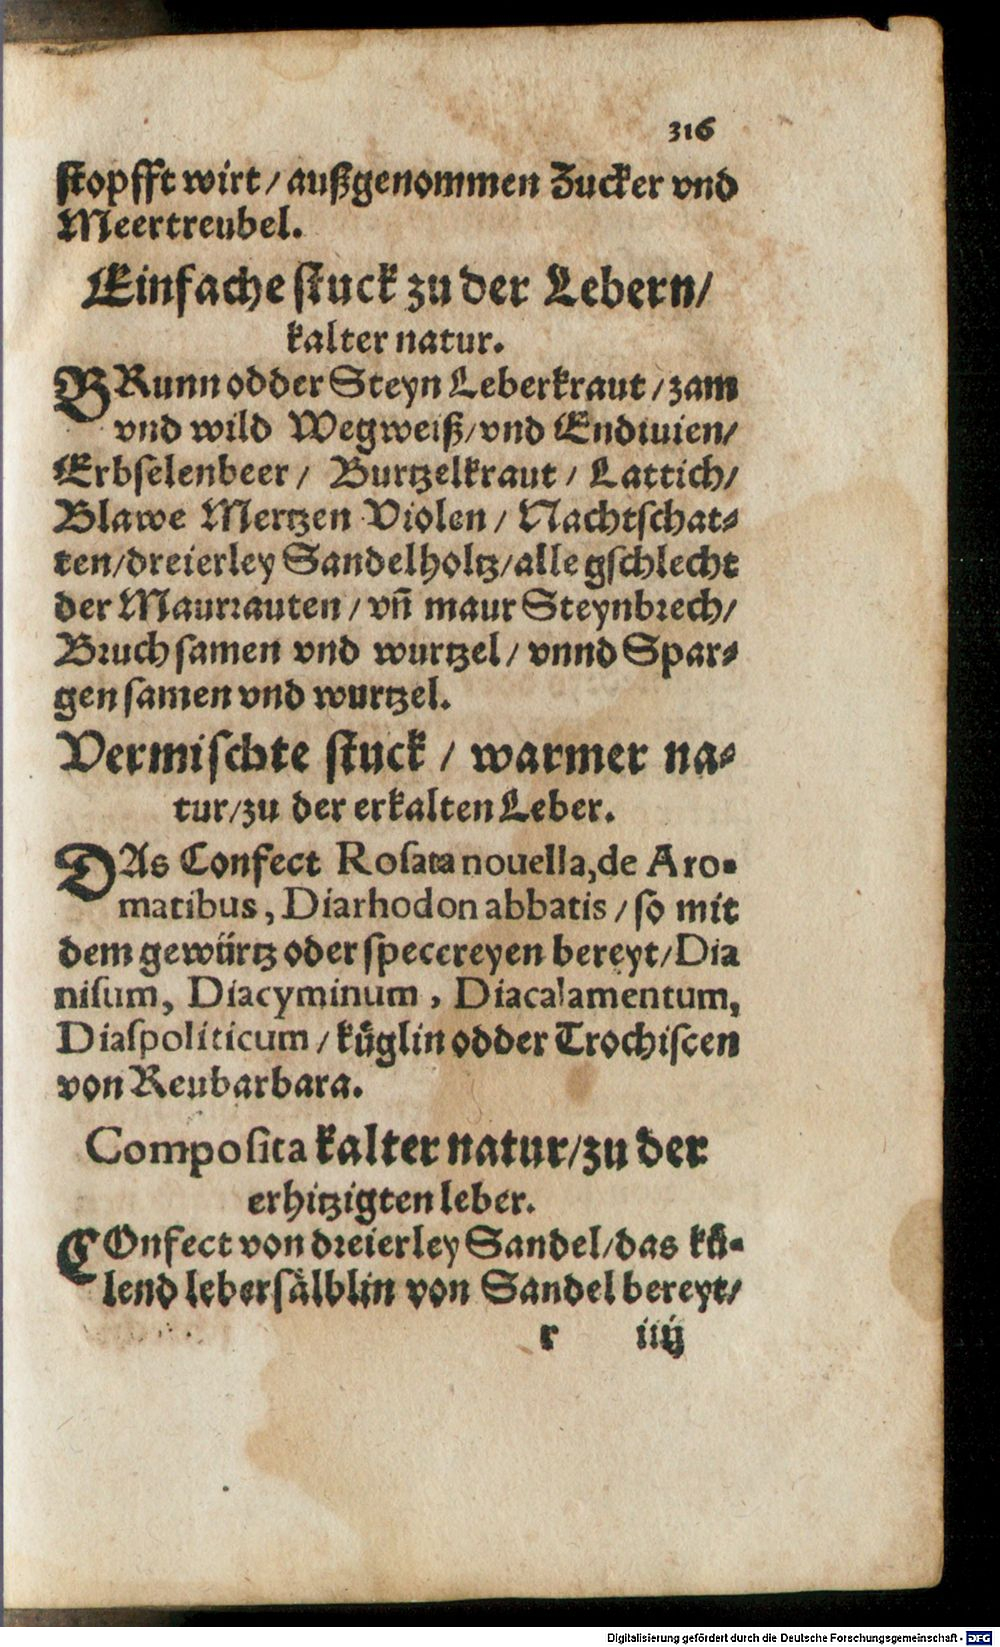 316
stopfft wirt / außgenommen Zucker vnd
Meertreubel.
Einfache stuck zu der Lebern /
kalter natur.
BRunn odder Steyn Leberkraut / zam
vnd wild Wegweiß / vnd Endiuien /
Erbselenbeer / Burtzelkraut / Lattich /
Blawe Mertzen Violen / Nachtschat⸗
ten / dreierley Sandelholtz / alle gschlecht
der Maurrauten / vñ maur Steynbrech /
Bruch samen vnd wurtzel / vnnd Spar⸗
gen samen vnd wurtzel.
Vermischte stuck / warmer na⸗
tur / zu der erkalten Leber.
DAs Confect Rosata nouella, de Aro⸗
matibus, Diarhodon abbatis / so mit
dem gewürtz oder specereyen bereyt / Dia
nisum, Diacyminum, Diacalamentum,
Diaspoliticum / kůglin odder Trochiscen
von Reubarbara.
Composita kalter natur / zu der
erhitzigten leber.
COnfect von dreierley Sandel / das ků⸗
lend lebersälblin von Sandel bereyt /
r iiij
Digitalisierung gefördert durch die Deutsche Forschungsgemeinschaft - DFG